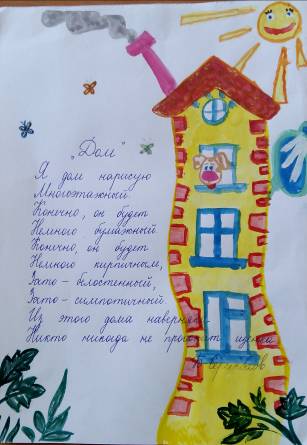 „Дом"
Я дом нарисую
Многоэтажный.
Конечно, он будет
Немного бумажный.
Конечно, он будет
Немного кирпичным,
Зато – белостенный,
Зато – симпатичный.
Из этого дома наверняка
Никто никогда не прогонит щенка